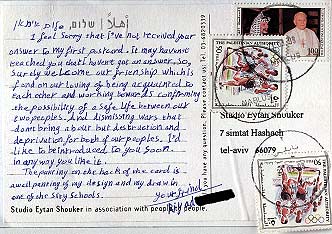 أهلاً | שלום
I feel Sorry that I've not received your
answer to my first postcard. It may haven't
reached you that I haven't got an answer. So,
Surely we become our frienship which is
found on our loving of being acquainted to
each other and working towards confirming
the possibility of a safe life between our
two peoples. And dismissing wars that
don't bring about but destruction and
deprivation for both of our peoples. I'd
like to be introduced to you soon
in any way you like it.
The painting on the back of the card is
a wall painting of my design and my draw in
one of the Schools.
Your friend
Studio Eytan Shouker in association with people to people.
you have any questions, Please contact us! Tel 03-6820339
THE PALESTINIAN AUTHORITY
THE PALESTINIAN AUTHORITY
Studio Eytan Shouker
7 simtat Hashach
tel-aviv 66079